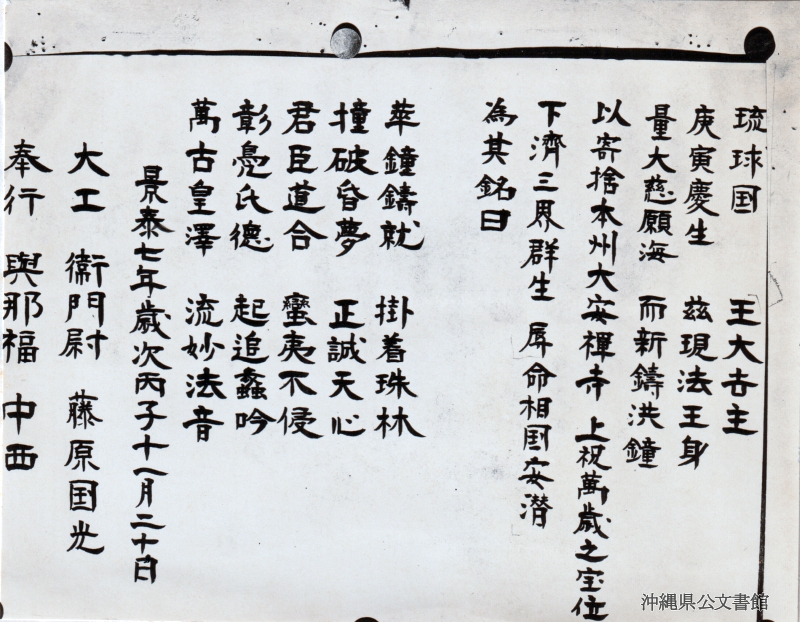 琉球国 王大世主
庚寅慶生 茲現法王身
量大慈願海 而新鋳洪鐘
以寄捨本州大安禅寺 上祝萬歳之宝位
下濟三界群生 辱命相国安潜
為其銘曰
華鐘鑄就 掛着珠林
撞破昏夢 正誠天心
君臣道合 蠻夷不侵
彰鳧氏德 起追蠡吟
萬古皇澤 流妙法音
景泰七年歳次丙子十一月二十日
大工 衞門尉 藤原国光
奉行 與那福 中西
沖縄県公文書館